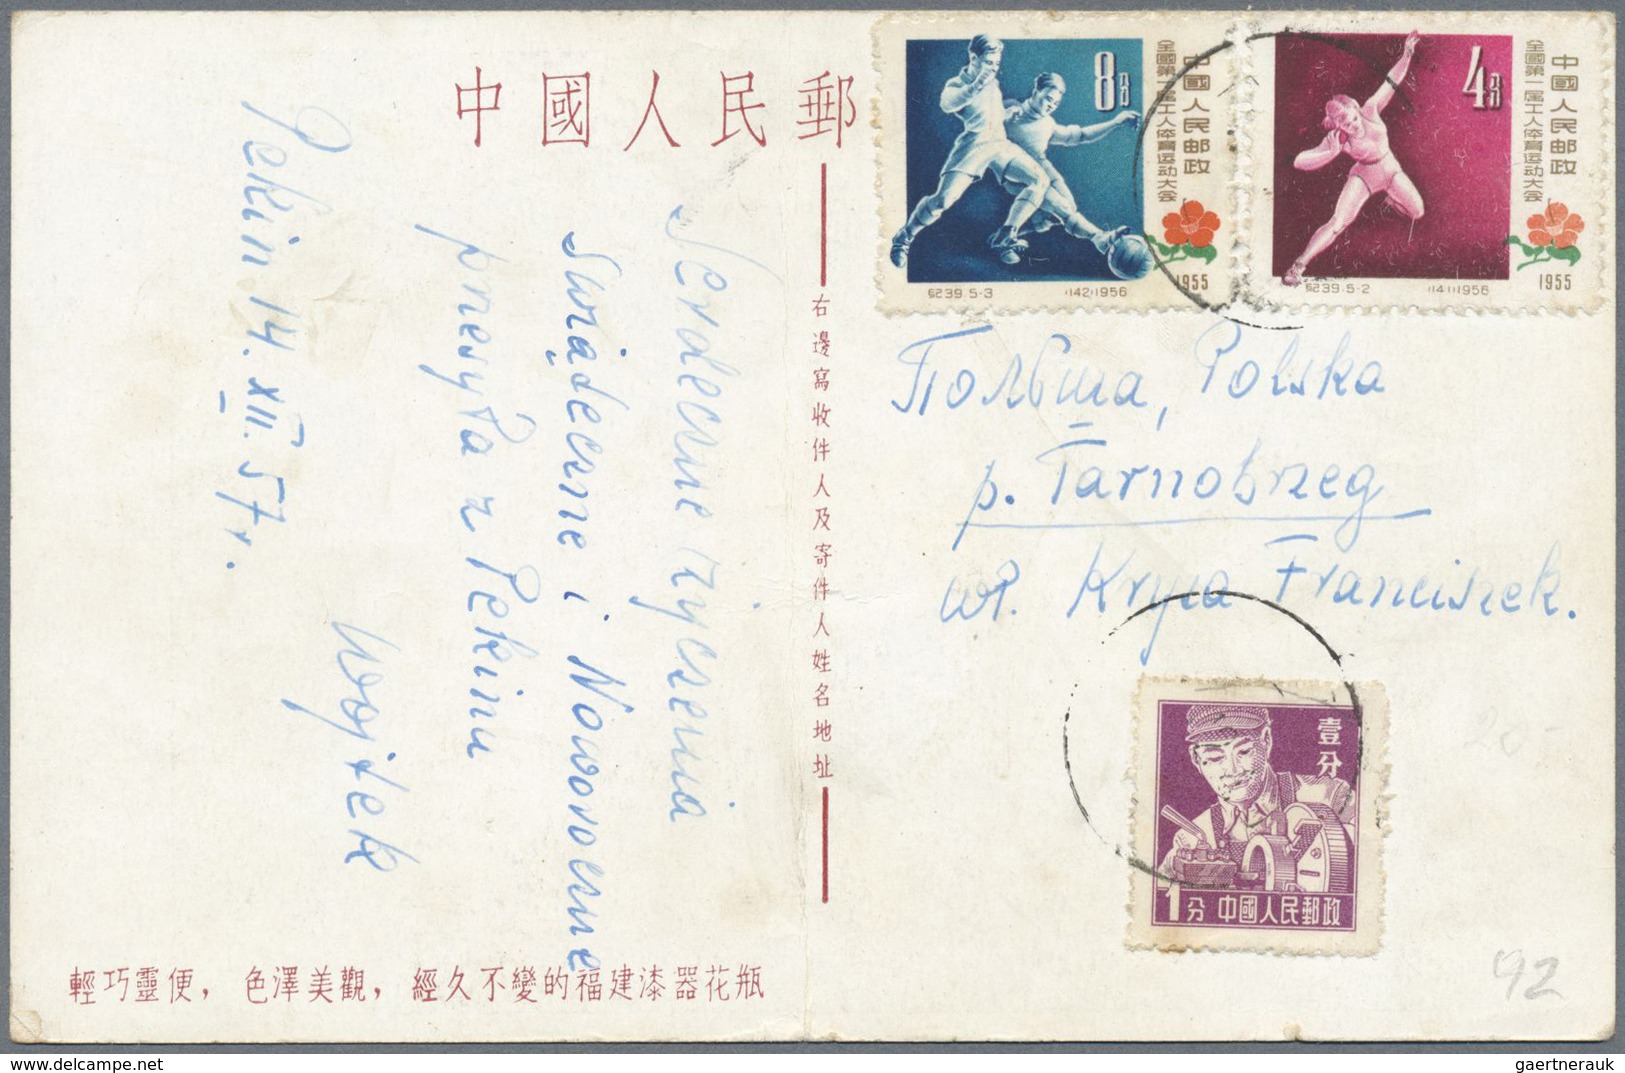 中國人民郵
Serdeczne życzenia
Świąteczne i Noworoczne
przesyła z Pekinu
Wojtek
Pekin 14. XII. 57 r.
右邊寫收件人及寄件人姓名地址
輕巧靈便，色澤美觀，經久不變的福建漆器花瓶
8分
中國人民邮政
全國第一届工人体育运动大会
1955
纪39.5-3
(142)1956
4分
中國人民邮政
全國第一届工人体育运动大会
1955
纪39.5-2
(141)1956
Польша, Polska
p. Tarnobrzeg
wł. Kryca Franciszek.
壹分
1分 中國人民郵政
92
delcampe.net
gaertnerauk